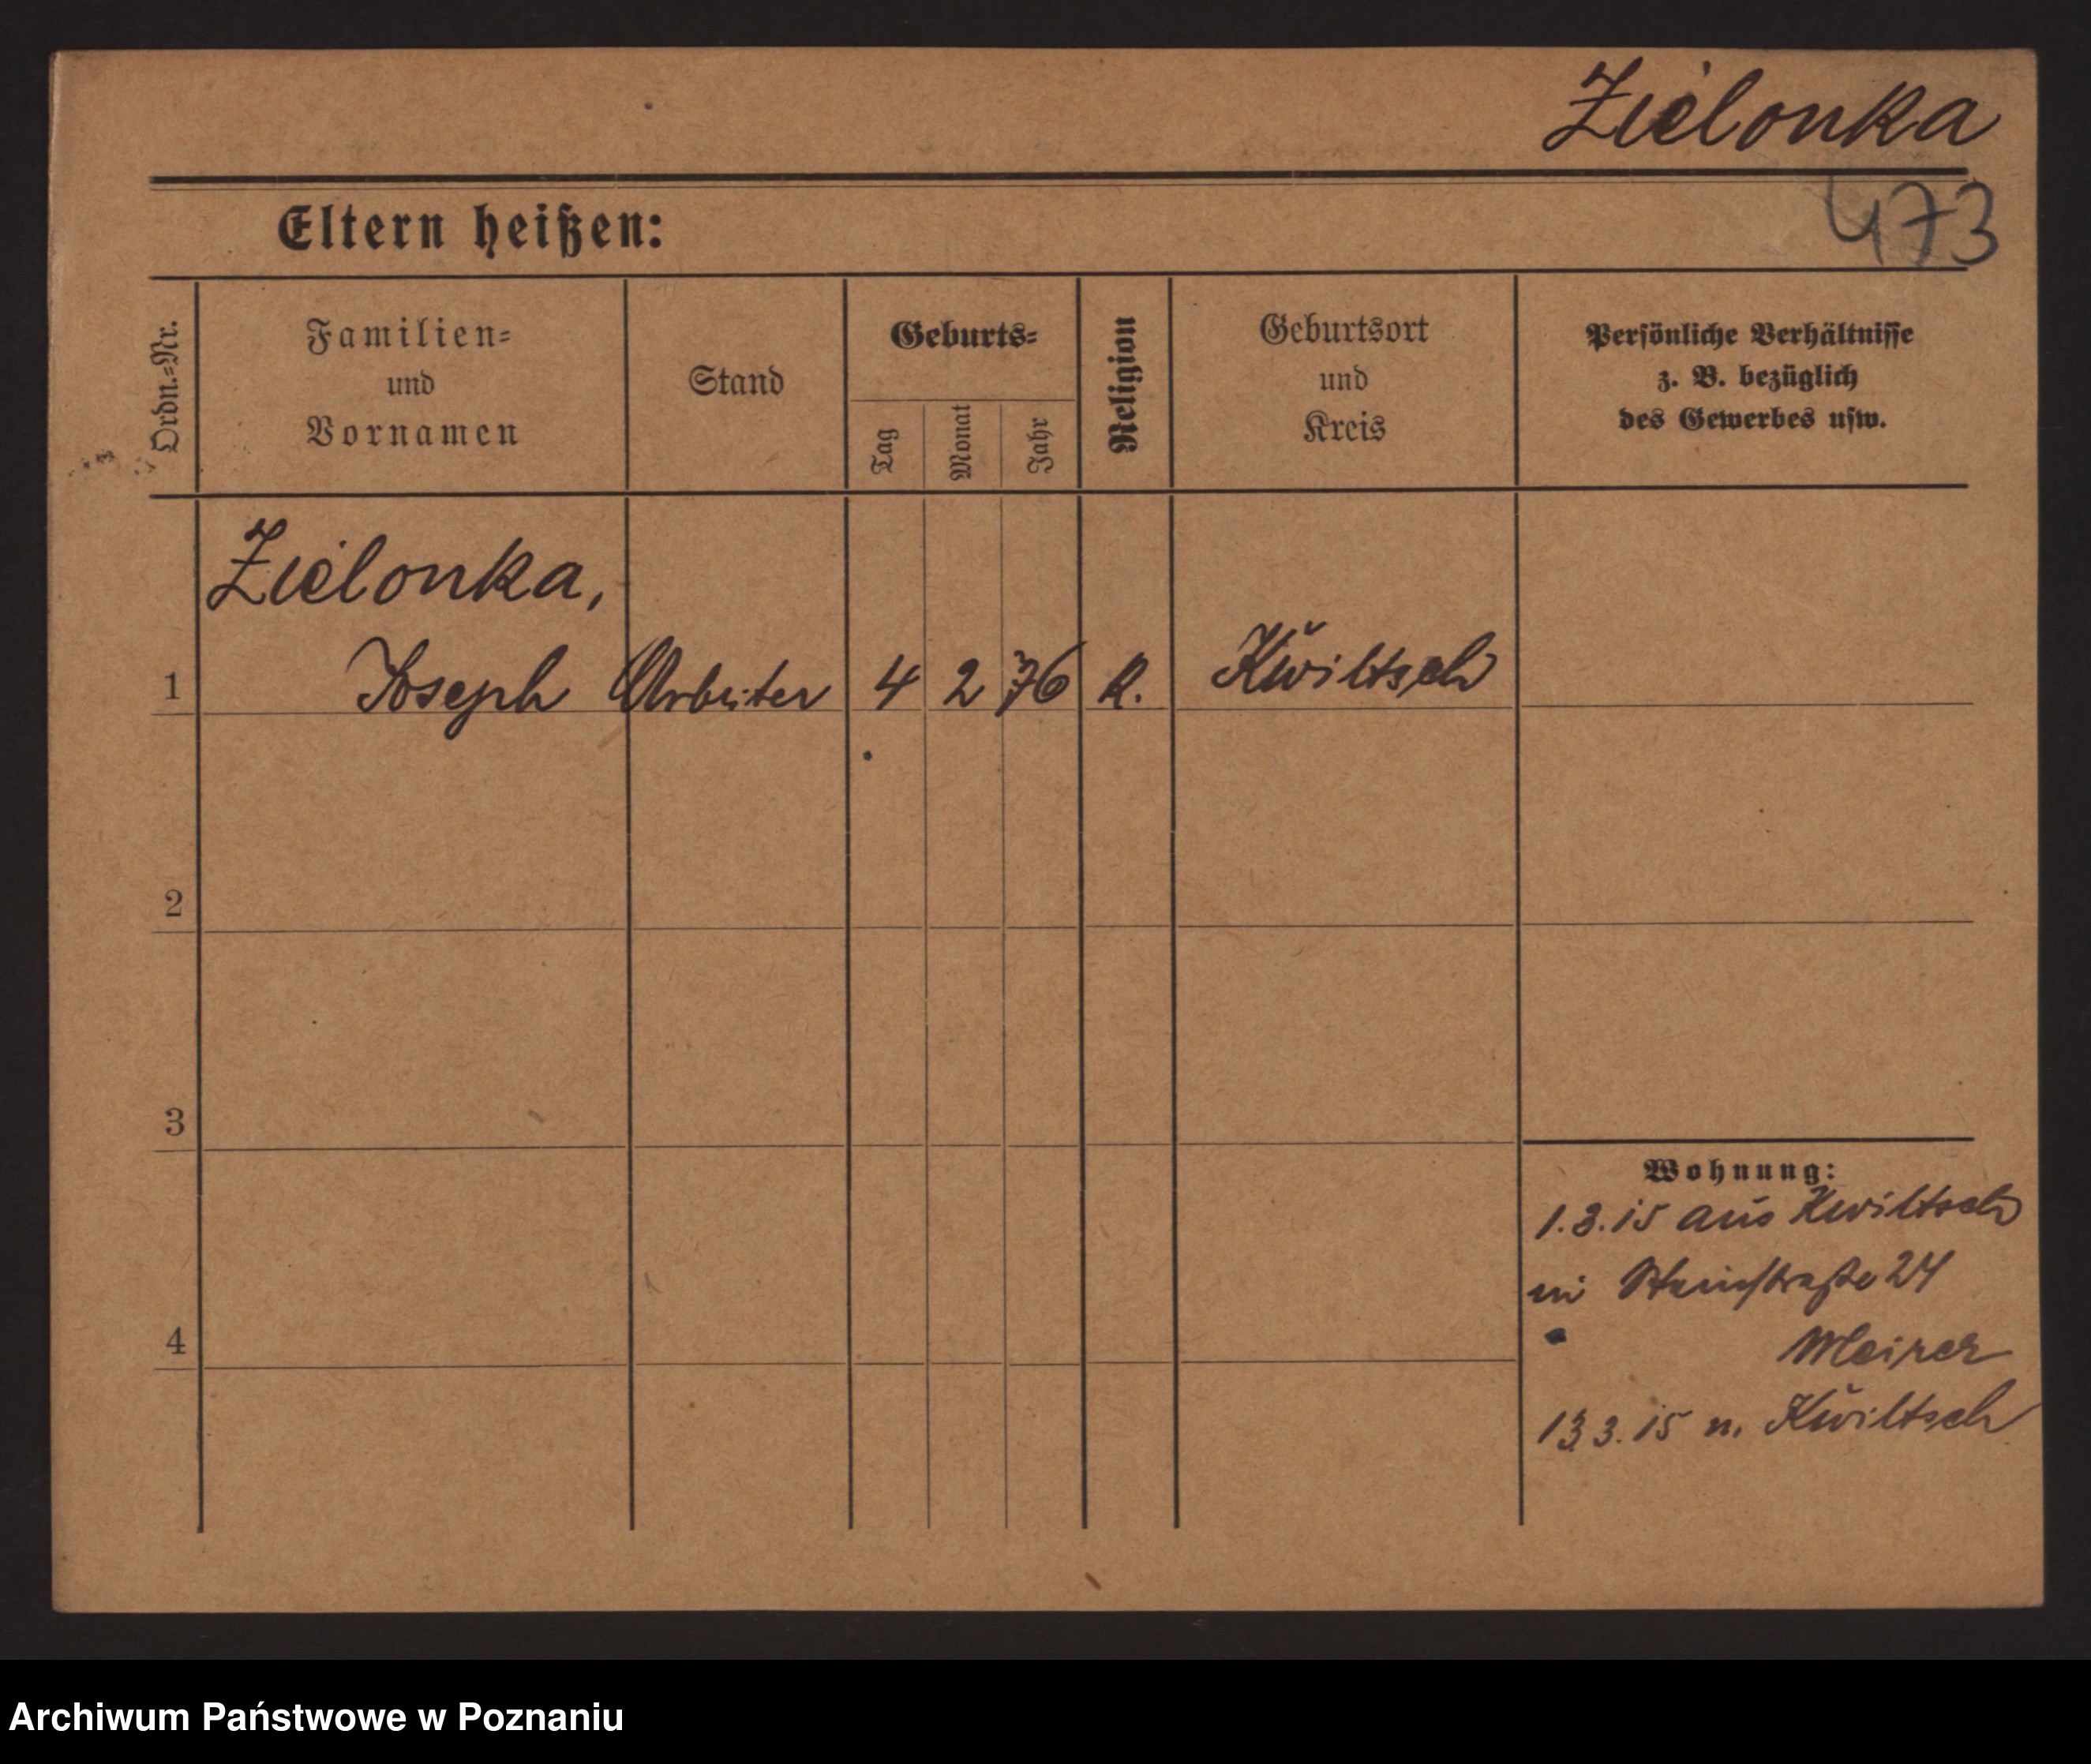 Zielonka
473
Eltern heißen:
Ordn.=Nr.
Familien=
und
Vornamen
Stand
Geburts=
Tag
Monat
Jahr
Religion
Geburtsort
und
Kreis
Persönliche Verhältnisse
z. B. bezüglich
des Gewerbes usw.
Zielonka,
1 Joseph Arbeiter 4 2 76 k. Kwiltsch
2
3
4
Wohnung:
1.3.15 aus Kwiltsch
24
13.3.15 n. Kwiltsch
Archiwum Państwowe w Poznaniu